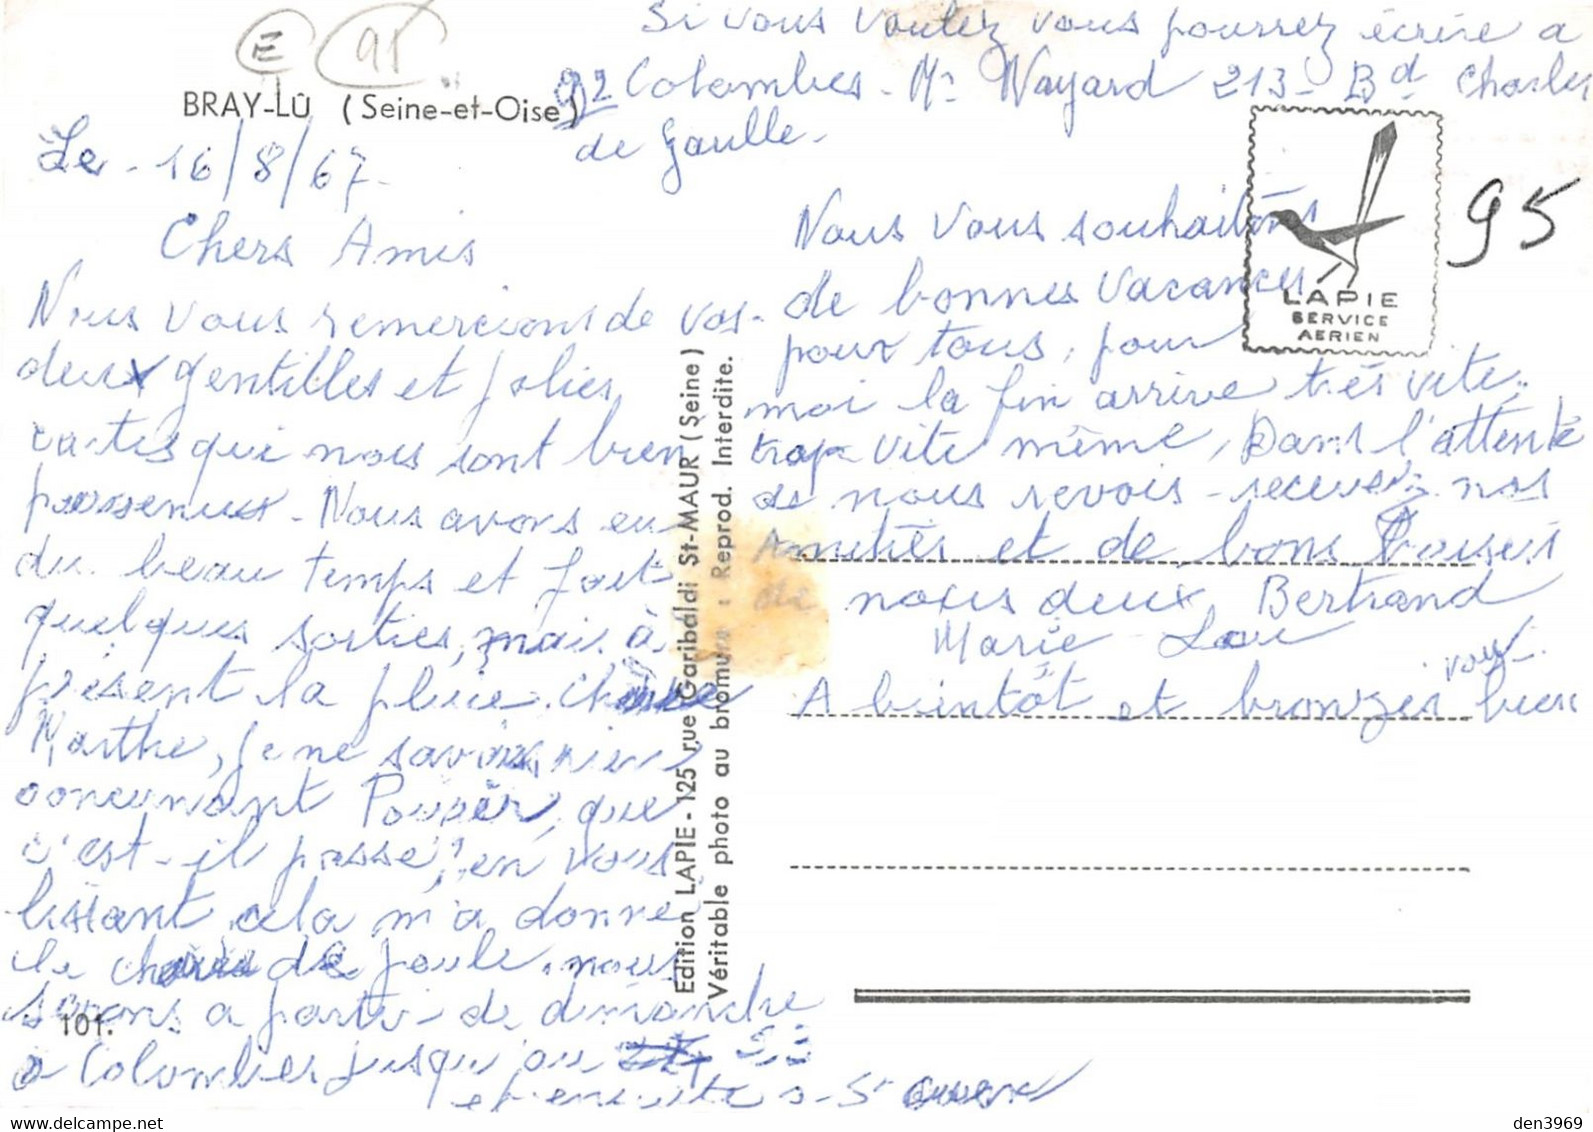 E 95
BRAY-LÛ (Seine-et-Oise)
Si vous voulez vous pourrez écrire a
92 Colombes - Mr Nayard 213 - Bd Charles
de Gaulle -
Le - 16/8/67 -
Chers Amis
Nous vous remercions de vos -
deux gentilles et jolies
cartes qui nous sont bien
parvenues - Nous avons eu
du beau temps et fait
quelques sorties, mais à
présent la pluie. Chère
Marthe, je ne savais, rien
concernant Poupée, que
c'est-il passé, en vous
lisant cela m'a donné
la chair de poule. nous
serons a partir de dimanche
a Colombes jusqu'au 23
et ensuite a St
101.
Edition LAPIE - 125 rue Garibaldi St-MAUR (Seine)
Véritable photo au bromure : Reprod. Interdite.
LAPIE
SERVICE
AERIEN
95
Nous vous souhaitons
de bonnes vacances
pour tous, pour
moi la fin arrive très vite,
trop vite même, Dans l'attente
de nous revois - recevez nos
Amitiés et de bons baisers
de nous deux, Bertrand
Marie Lou
A bientôt et bronzer vous bien
den3969